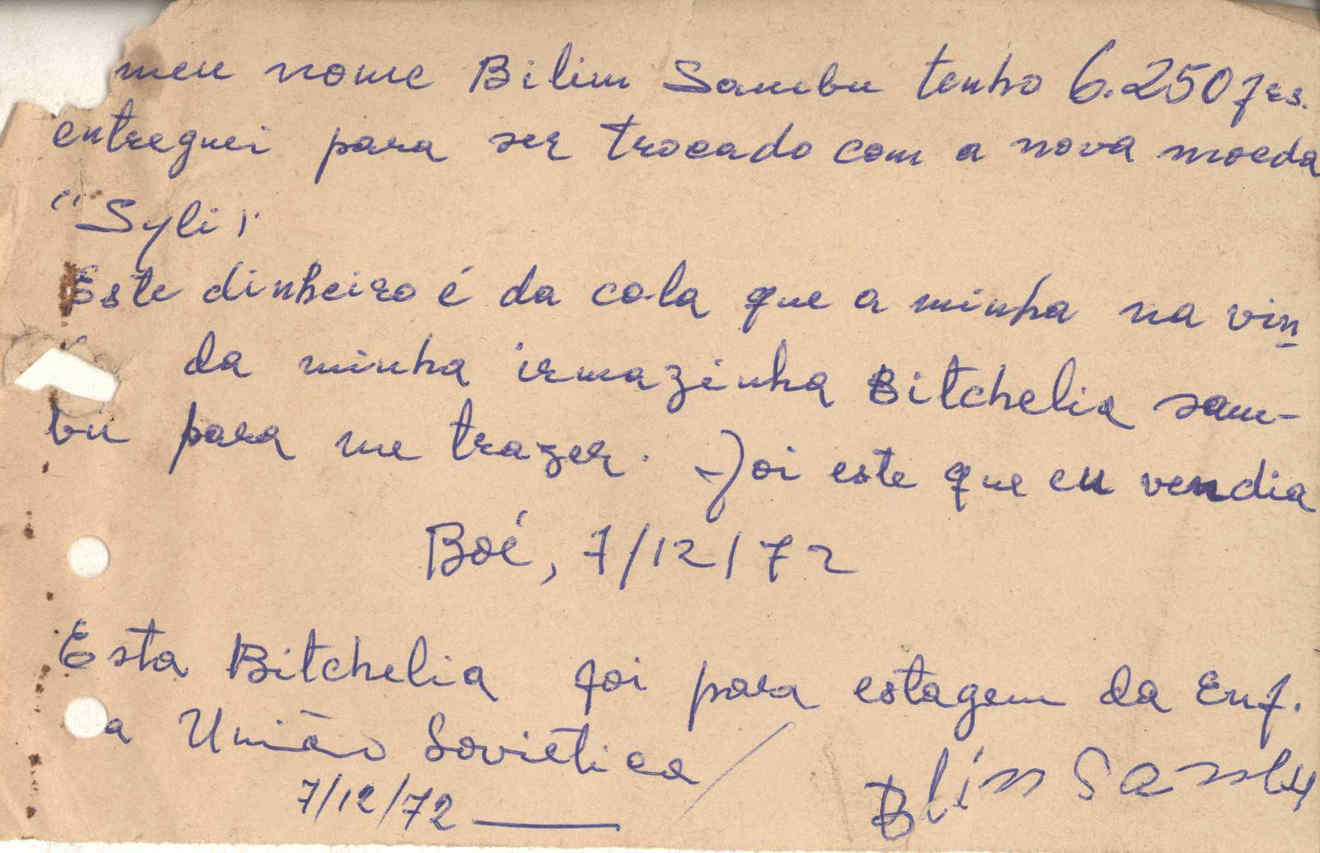 meu nome Bilim Sambu tenho 6.250 frs.
entreguei para ser trocado com a nova moeda
"Syli"
Este dinheiro é da cola que a minha na vin
da minha irmazinha Bitchelia sam-
bu para me trazer. Foi este que eu vendia
Boé, 7/12/72
Esta Bitchelia foi para estagem da Enf.
a União Sovietica/
7/12/72
Blim Sambu